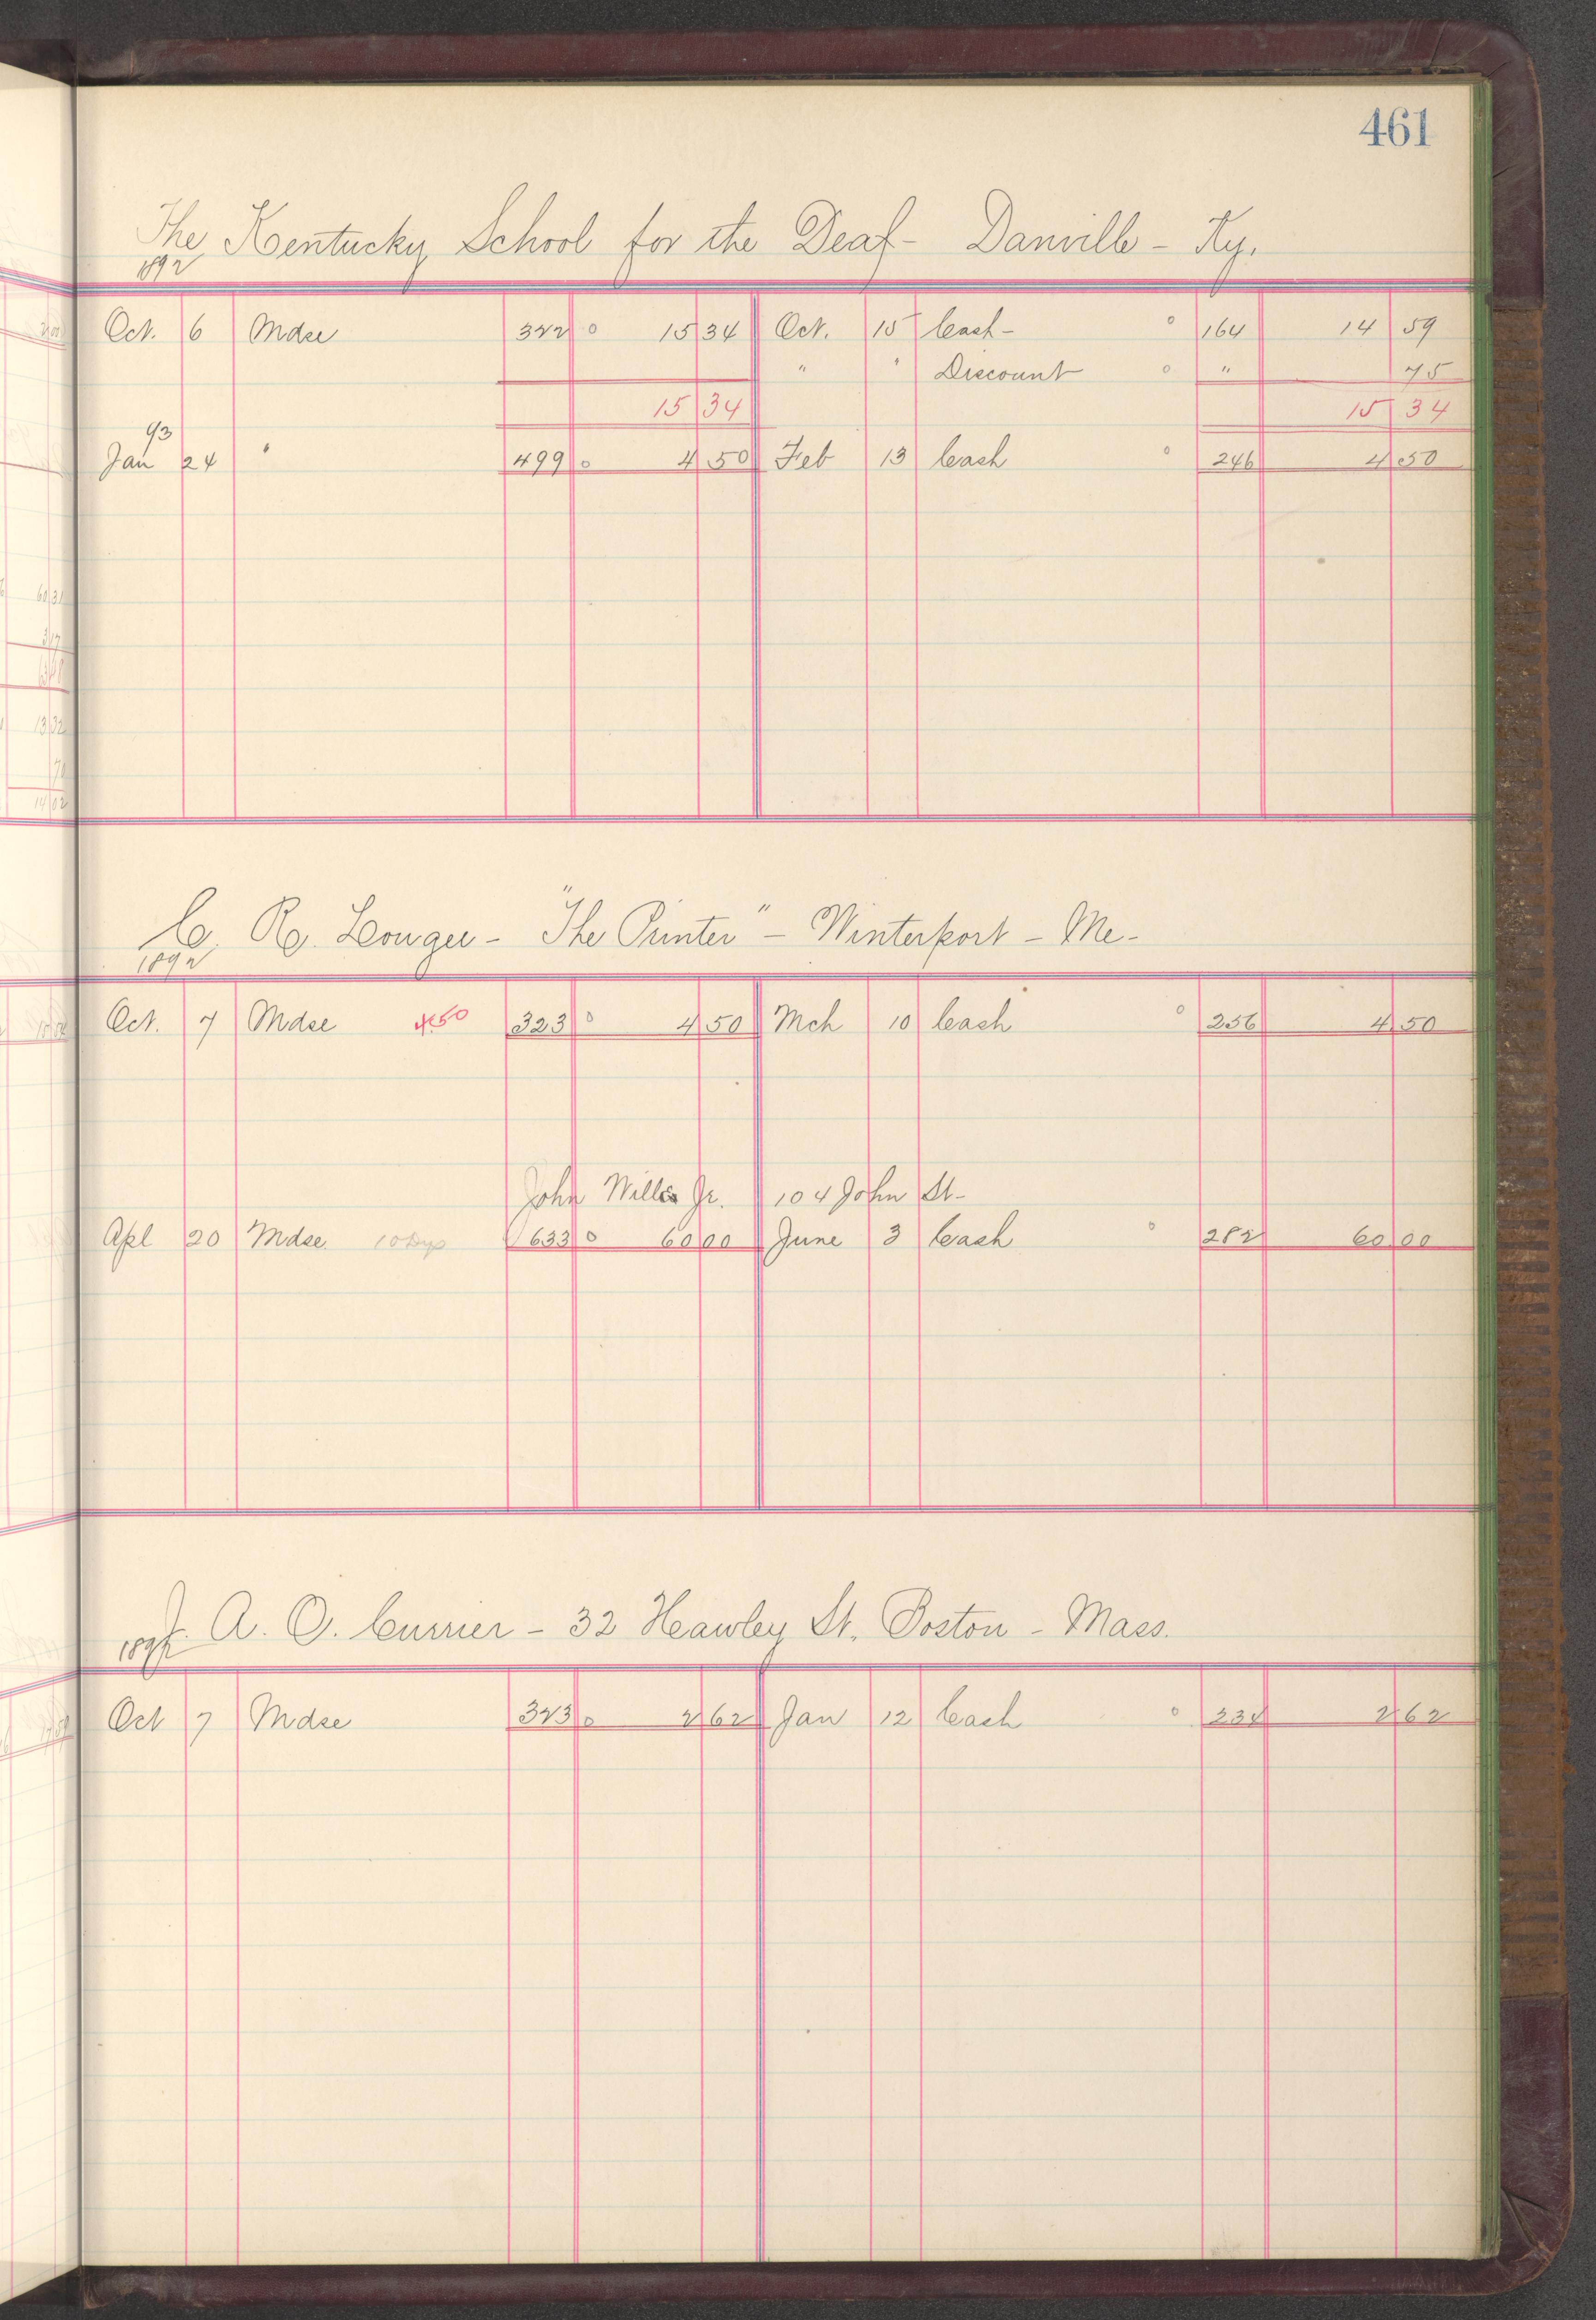 461
The Kentucky School for the Deaf - Danville - Ky.
1892
Oct. 6 Mdse 322 0 15 34 Oct. 15 Cash - 0 164 14 59
" " Discount 0 " 75
15 34 15 34
93
Jan 24 " 499 0 4 50 Feb 13 Cash 0 246 4 50
C. R. - "The Printer" - Winterport - Me -
1892
Oct. 7 Mdse 4.50 323 0 4 50 Mch 10 Cash 0 256 4 50
John Willis Jr. 104 John St -
Apl 20 Mdse 10 Dys 633 0 60 00 June 3 Cash 0 282 60 00
J. A. O. Currier - 32 Hawley St. Boston - Mass.
1892
Oct 7 Mdse 323 0 2 62 Jan 12 Cash 0 234 2 62